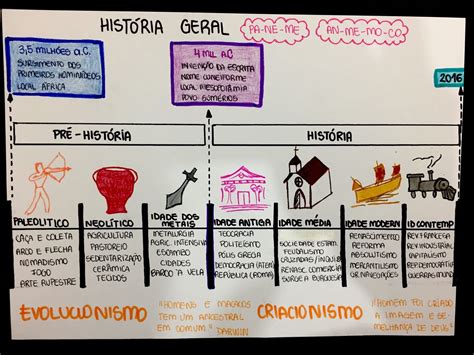 HISTÓRIA GERAL
PA-NE-ME
AN-ME-MO-CO
3,5 MILHÕES a.C.
SURGIMENTO DOS
PRIMEIROS HOMINÍDEOS
LOCAL ÁFRICA
4 MIL A.C
INVENÇÃO DA ESCRITA
NOME CUNEIFORME
LOCAL MESOPOTÂMIA
POVO SUMÉRIOS
2016
PRÉ-HISTÓRIA
HISTÓRIA
PALEOLITICO
CAÇA E COLETA
ARO E FLECHA
NOMADISMO
FOGO
ARTE RUPESTRE
NEOLÍTICO
AGRICULTURA
PASTOREIO
SEDENTARIZAÇÃO
CERÂMICA
TECIDOS
IDADE DOS
METAIS
METALURGIA
AGRIC. INTENSIVA
ESCAMBO
CIDADES
BARCO À VELA
IDADE ANTIGA
TEOCRACIA
POLITEÍSMO
PÓLIS GREGA
DEMOCRACIA (ATEN)
REPÚBLICA (ROMA)
IDADE MÉDIA
SOCIEDADE ESTAM.
FEUDALISMO
CRUZADAS/INQUIS
RENASC. COMERCIAL
SURGE A BURGUES
IDADE MODERN
RENASCIMENTO
REFORMA
ABSOLUTISMO
MERCANTILISMO
GR. NAVEGAÇÕES
ID CONTEMP.
REV. FRANCESA
REV. INDUSTRIAL
CAPITALISMO
REP. DEMOCRÁTICA
GUERRAS MUNDI
EVOLUCIONISMO
"HOMENS E MACACOS
TEM UM ANCESTRAL
EM COMUM." DARWIN
CRIACIONISMO
"HOMEM FOI CRIADO
A IMAGEM E SE-
MELHANÇA DE DEUS"